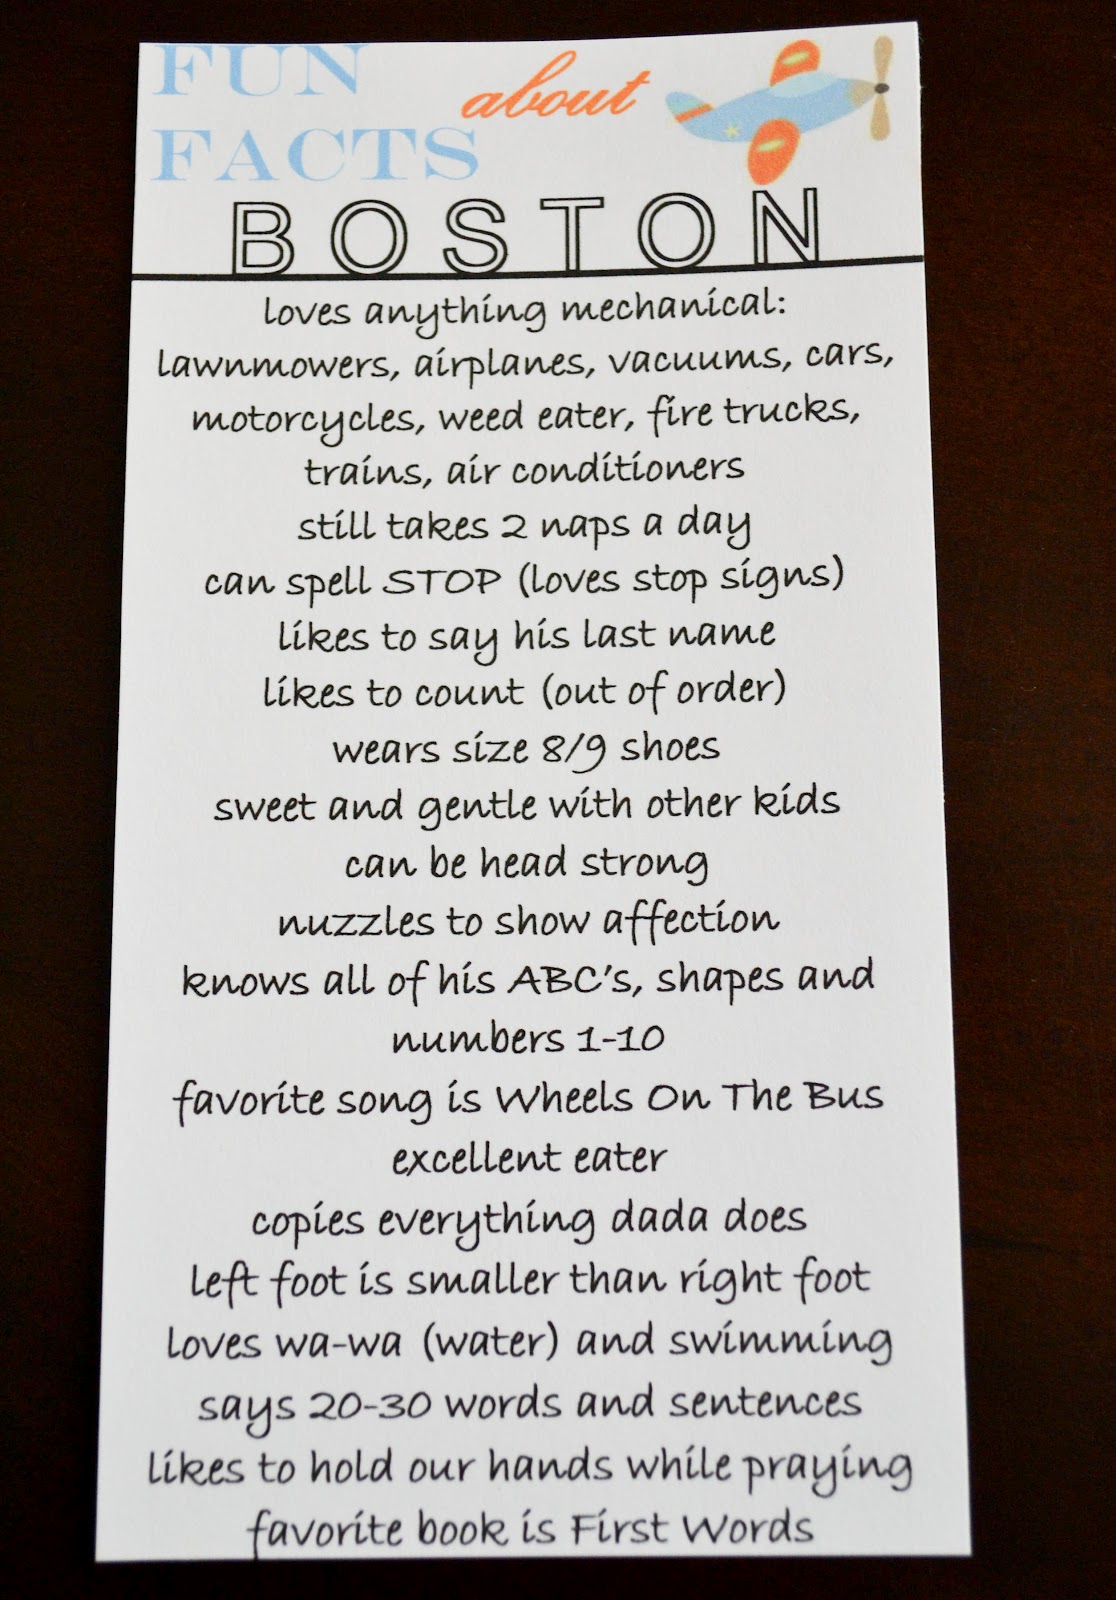 FUN
FACTS about
BOSTON
loves anything mechanical:
lawnmowers, airplanes, vacuums, cars,
motorcycles, weed eater, fire trucks,
trains, air conditioners
still takes 2 naps a day
can spell STOP (loves stop signs)
likes to say his last name
likes to count (out of order)
wears size 8/9 shoes
sweet and gentle with other kids
can be head strong
nuzzles to show affection
knows all of his ABC's, shapes and
numbers 1-10
favorite song is Wheels On The Bus
excellent eater
copies everything dada does
left foot is smaller than right foot
loves wa-wa (water) and swimming
says 20-30 words and sentences
likes to hold our hands while praying
favorite book is First Words